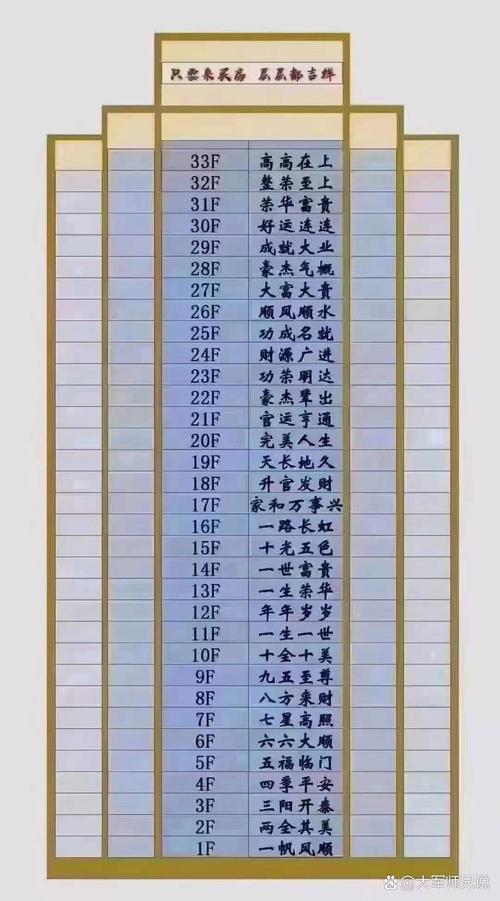 只要来买房 层层都吉祥
33F 高高在上
32F 整荣至上
31F 荣华富贵
30F 好运连连
29F 成就大业
28F 豪杰气概
27F 大富大贵
26F 顺风顺水
25F 功成名就
24F 财源广进
23F 功荣明达
22F 豪杰辈出
21F 官运亨通
20F 完美人生
19F 天长地久
18F 升官发财
17F 家和万事兴
16F 一路长虹
15F 十光五色
14F 一世富贵
13F 一生荣华
12F 年年岁岁
11F 一生一世
10F 十全十美
9F 九五至尊
8F 八方来财
7F 七星高照
6F 六六大顺
5F 五福临门
4F 四季平安
3F 三阳开泰
2F 两全其美
1F 一帆风顺
@大军师兄说